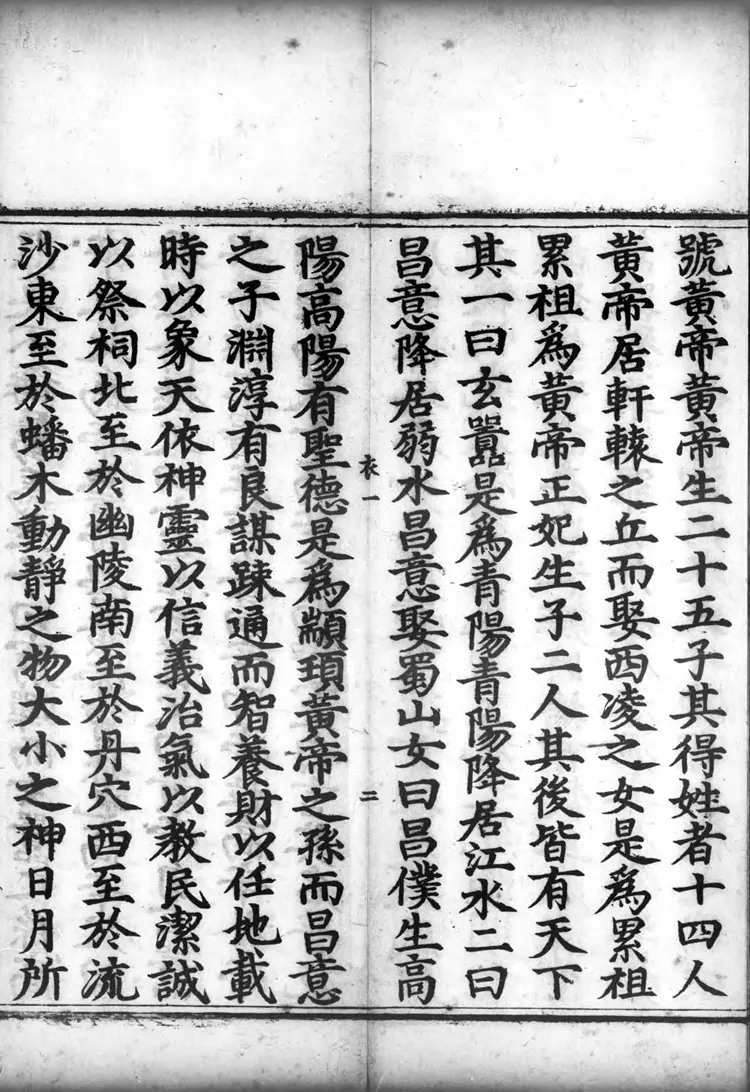 號黃帝黃帝生二十五子其得姓者十四人
黃帝居軒轅之丘而娶西凌之女是爲累祖
累祖爲黃帝正妃生子二人其後皆有天下
其一曰玄囂是爲青陽青陽降居江水二曰
昌意降居弱水昌意娶蜀山女曰昌僕生高
衣一
二
陽高陽有聖德是爲顓頊黃帝之孫而昌意
之子淵淳有良謀踈通而智養財以任地載
時以象天依神靈以信義治氣以教民潔誠
以祭祠北至於幽陵南至於丹穴西至於流
沙東至於蟠木動靜之物大小之神日月所